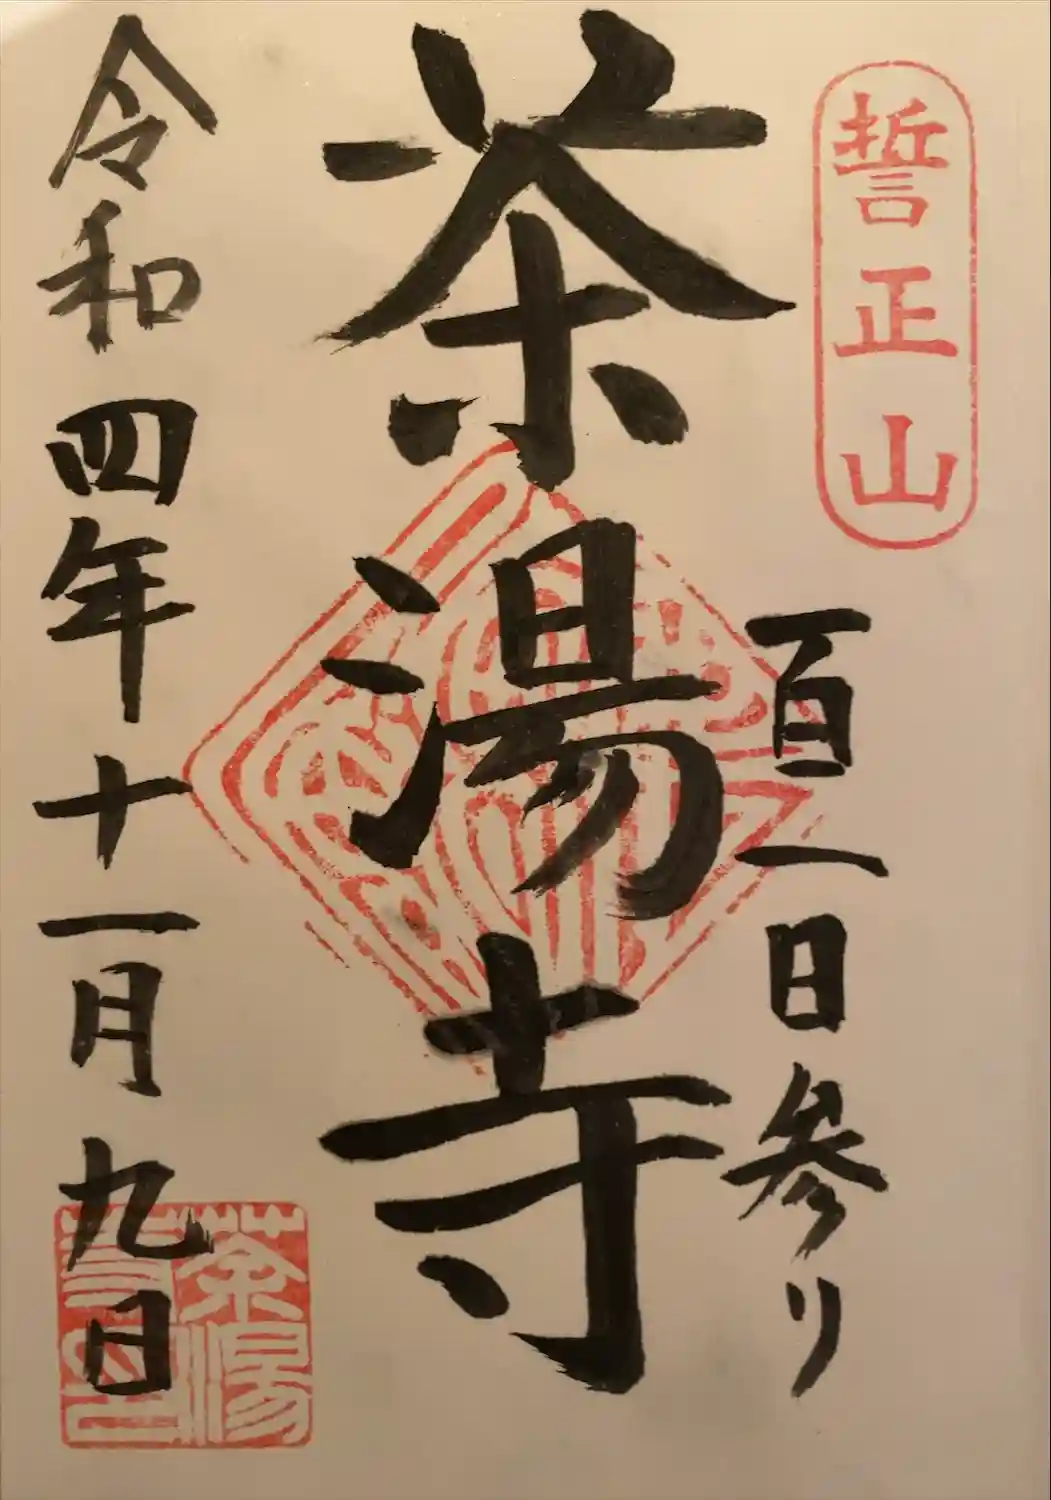 誓正山
百一日参り
茶湯寺
令和四年十一月九日
茶湯寺印